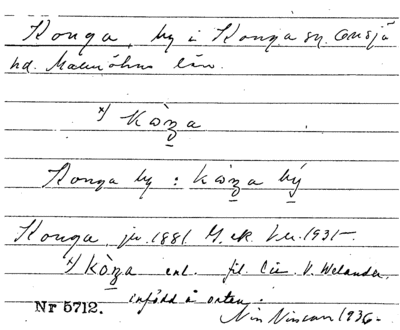 Konga, by i Konga sn. Onsjö
hd. Malmöhus län.
x) Kòŋa
Konga by : kòŋa bý
Konga, jv. 1881 G. ek. bl. 1931.
x) Kòŋa enl. fil. lic V. Welander,
infödd å orten.
Nr 5712.
1936.